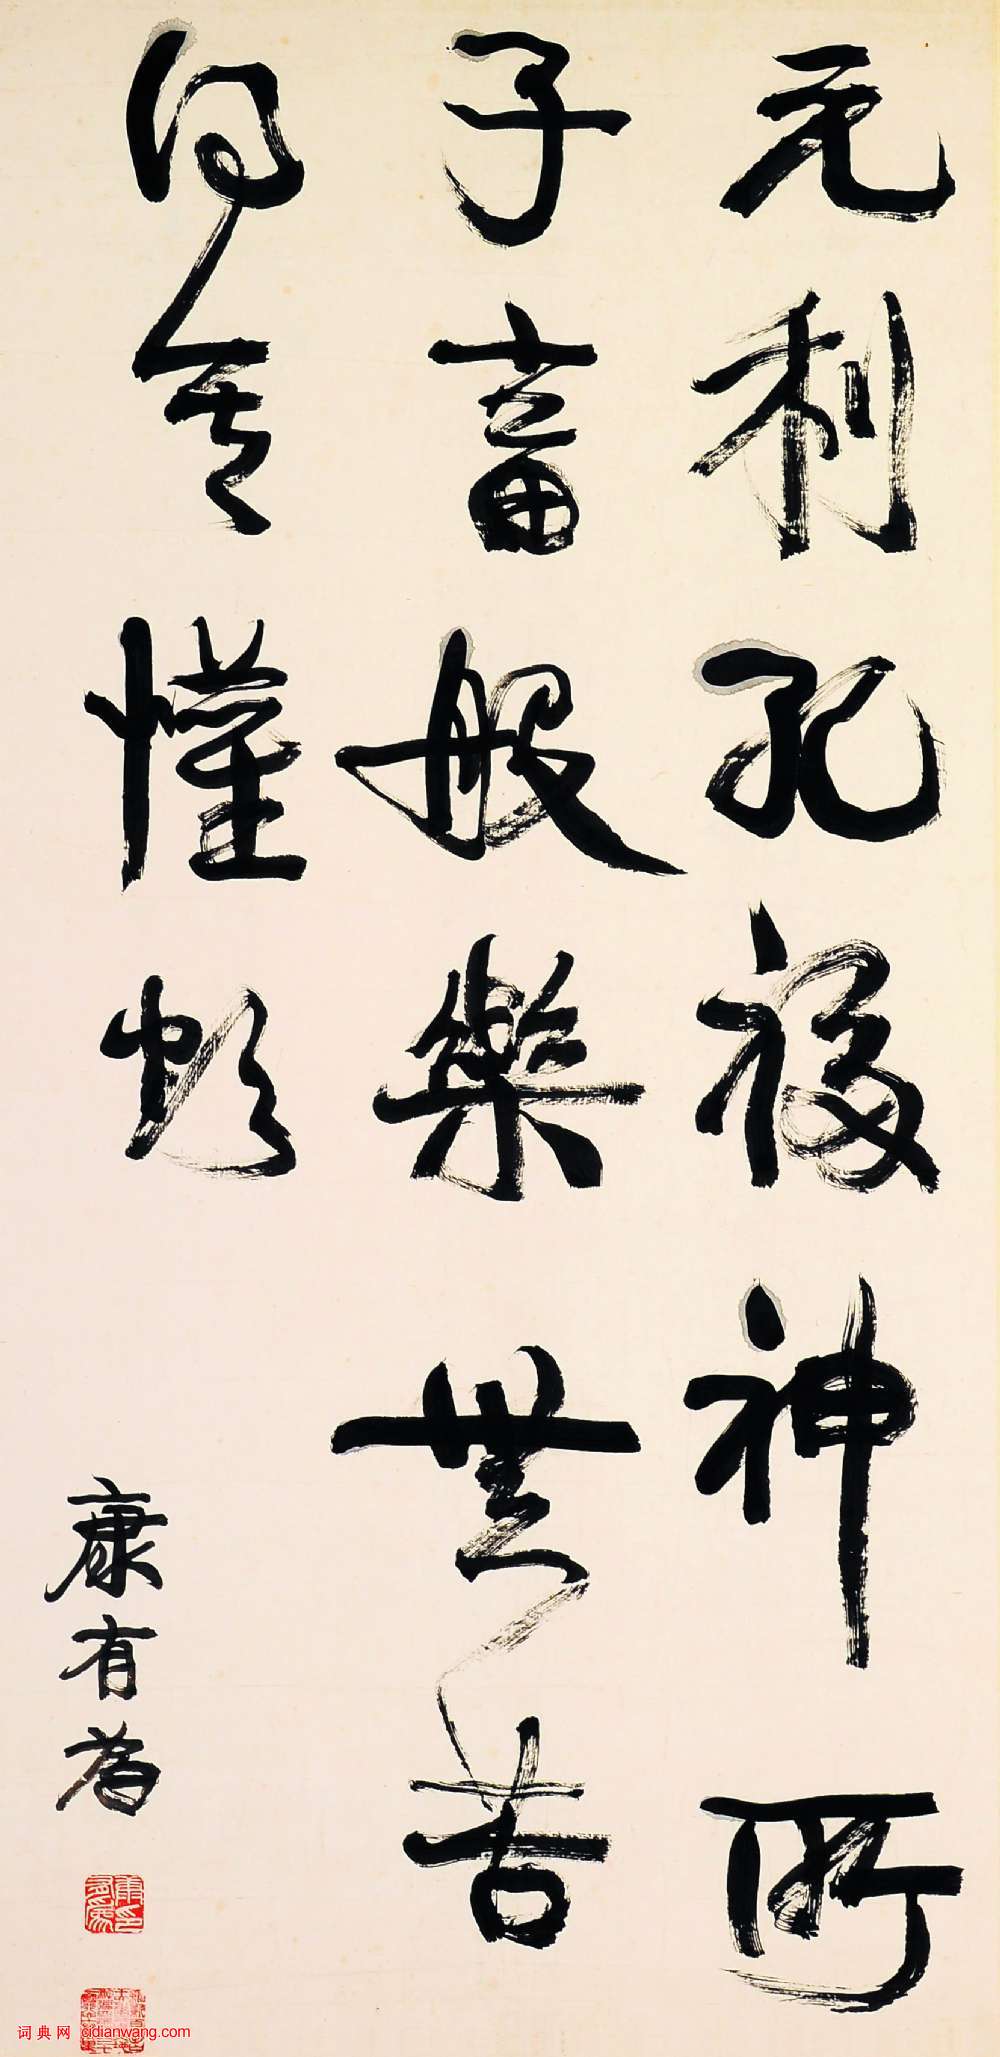 元利孔福神所
子畜般樂無苦
得其懽欣
康有為
词典网 cidianwang.com